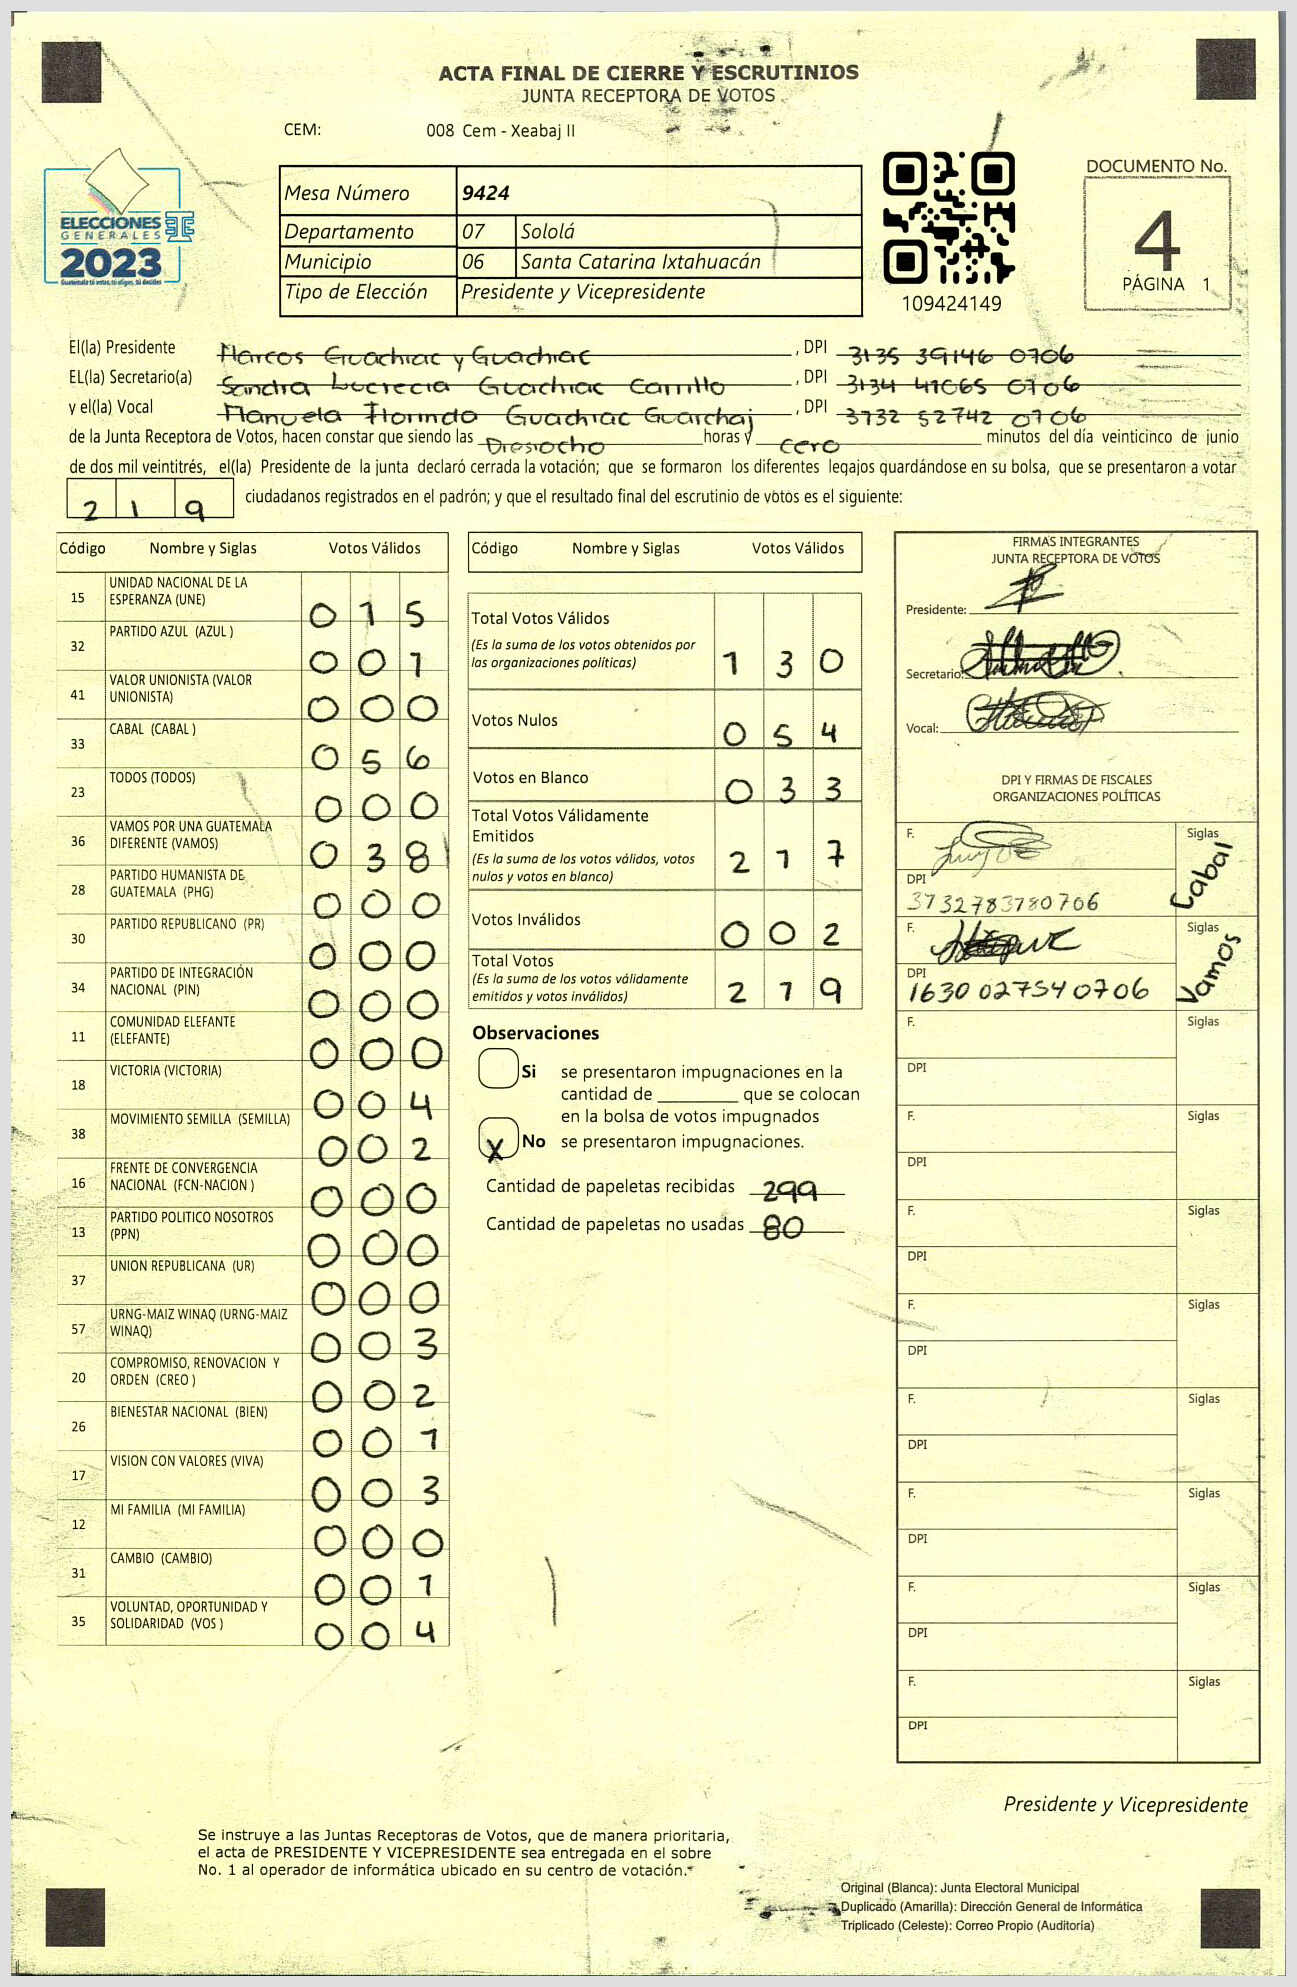 ACTA FINAL DE CIERRE Y ESCRUTINIOS
JUNTA RECEPTORA DE VOTOS
CEM: 008 Cem - Xeabaj II
ELECCIONES
GENERALES
2023
Guatemala tú votas, tú eliges, tú decides
Mesa Número 9424
Departamento 07 Sololá
Municipio 06 Santa Catarina Ixtahuacán
Tipo de Elección Presidente y Vicepresidente
109424149
DOCUMENTO No.
4
PÁGINA 1
El(la) Presidente Marcos Guachiac y Guachiac, DPI 3135 39146 0706
EL(la) Secretario(a) Sandra Lucrecia Guachiac Carrillo, DPI 3134 41065 0706
y el(la) Vocal Manuela Florinda Guachiac Guarchaj, DPI 3732 52742 0706
de la Junta Receptora de Votos, hacen constar que siendo las Diesiocho horas y cero minutos del día veinticinco de junio
de dos mil veintitrés, el(la) Presidente de la junta declaró cerrada la votación; que se formaron los diferentes legajos guardándose en su bolsa, que se presentaron a votar
219 ciudadanos registrados en el padrón; y que el resultado final del escrutinio de votos es el siguiente:
Código Nombre y Siglas Votos Válidos
15 UNIDAD NACIONAL DE LA ESPERANZA (UNE) 015
32 PARTIDO AZUL (AZUL ) 001
41 VALOR UNIONISTA (VALOR UNIONISTA) 000
33 CABAL (CABAL ) 056
23 TODOS (TODOS) 000
36 VAMOS POR UNA GUATEMALA DIFERENTE (VAMOS) 038
28 PARTIDO HUMANISTA DE GUATEMALA (PHG) 000
30 PARTIDO REPUBLICANO (PR) 000
34 PARTIDO DE INTEGRACIÓN NACIONAL (PIN) 000
11 COMUNIDAD ELEFANTE (ELEFANTE) 000
18 VICTORIA (VICTORIA) 004
38 MOVIMIENTO SEMILLA (SEMILLA) 002
16 FRENTE DE CONVERGENCIA NACIONAL (FCN-NACION ) 000
13 PARTIDO POLITICO NOSOTROS (PPN) 000
37 UNION REPUBLICANA (UR) 000
57 URNG-MAIZ WINAQ (URNG-MAIZ WINAQ) 003
20 COMPROMISO, RENOVACION Y ORDEN (CREO ) 002
26 BIENESTAR NACIONAL (BIEN) 001
17 VISION CON VALORES (VIVA) 003
12 MI FAMILIA (MI FAMILIA) 000
31 CAMBIO (CAMBIO) 001
35 VOLUNTAD, OPORTUNIDAD Y SOLIDARIDAD (VOS ) 004
Código Nombre y Siglas Votos Válidos
Total Votos Válidos
(Es la suma de los votos obtenidos por
las organizaciones políticas) 130
Votos Nulos 054
Votos en Blanco 033
Total Votos Válidamente
Emitidos
(Es la suma de los votos válidos, votos
nulos y votos en blanco) 217
Votos Inválidos 002
Total Votos
(Es la suma de los votos válidamente
emitidos y votos inválidos) 219
Observaciones
Si se presentaron impugnaciones en la
cantidad de ________ que se colocan
en la bolsa de votos impugnados
X No se presentaron impugnaciones.
Cantidad de papeletas recibidas 299
Cantidad de papeletas no usadas 80
FIRMAS INTEGRANTES
JUNTA RECEPTORA DE VOTOS
Presidente:
Secretario:
Vocal:
DPI Y FIRMAS DE FISCALES
ORGANIZACIONES POLÍTICAS
F. Siglas Cabal
DPI
3732783780706
F. Siglas Vamos
DPI
1630 027540706
F. Siglas
DPI
F. Siglas
DPI
F. Siglas
DPI
F. Siglas
DPI
F. Siglas
DPI
F. Siglas
DPI
F. Siglas
DPI
F. Siglas
DPI
Presidente y Vicepresidente
Se instruye a las Juntas Receptoras de Votos, que de manera prioritaria,
el acta de PRESIDENTE Y VICEPRESIDENTE sea entregada en el sobre
No. 1 al operador de informática ubicado en su centro de votación.
Original (Blanca): Junta Electoral Municipal
Duplicado (Amarilla): Dirección General de Informática
Triplicado (Celeste): Correo Propio (Auditoría)